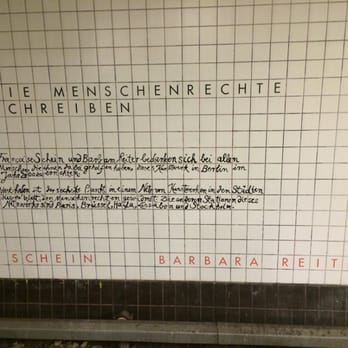 IE MENSCHENRECHTE
CHREIBEN
Françoise Schein und Barbara Reiter bedanken sich bei allen
Menschen, die ihnen dabei geholfen haben, dieses Kunstwerk in Berlin im
Jahr 2000 zu
ist der sechste Punkt in einem Netz von Kunstwerken in den Städten
den Menschenrechten gewidmet. Die anderen Stationen dieses
Netzwerks sind Paris, Brüssel, Haifa, Lissabon und Stockholm.
SCHEIN BARBARA REIT